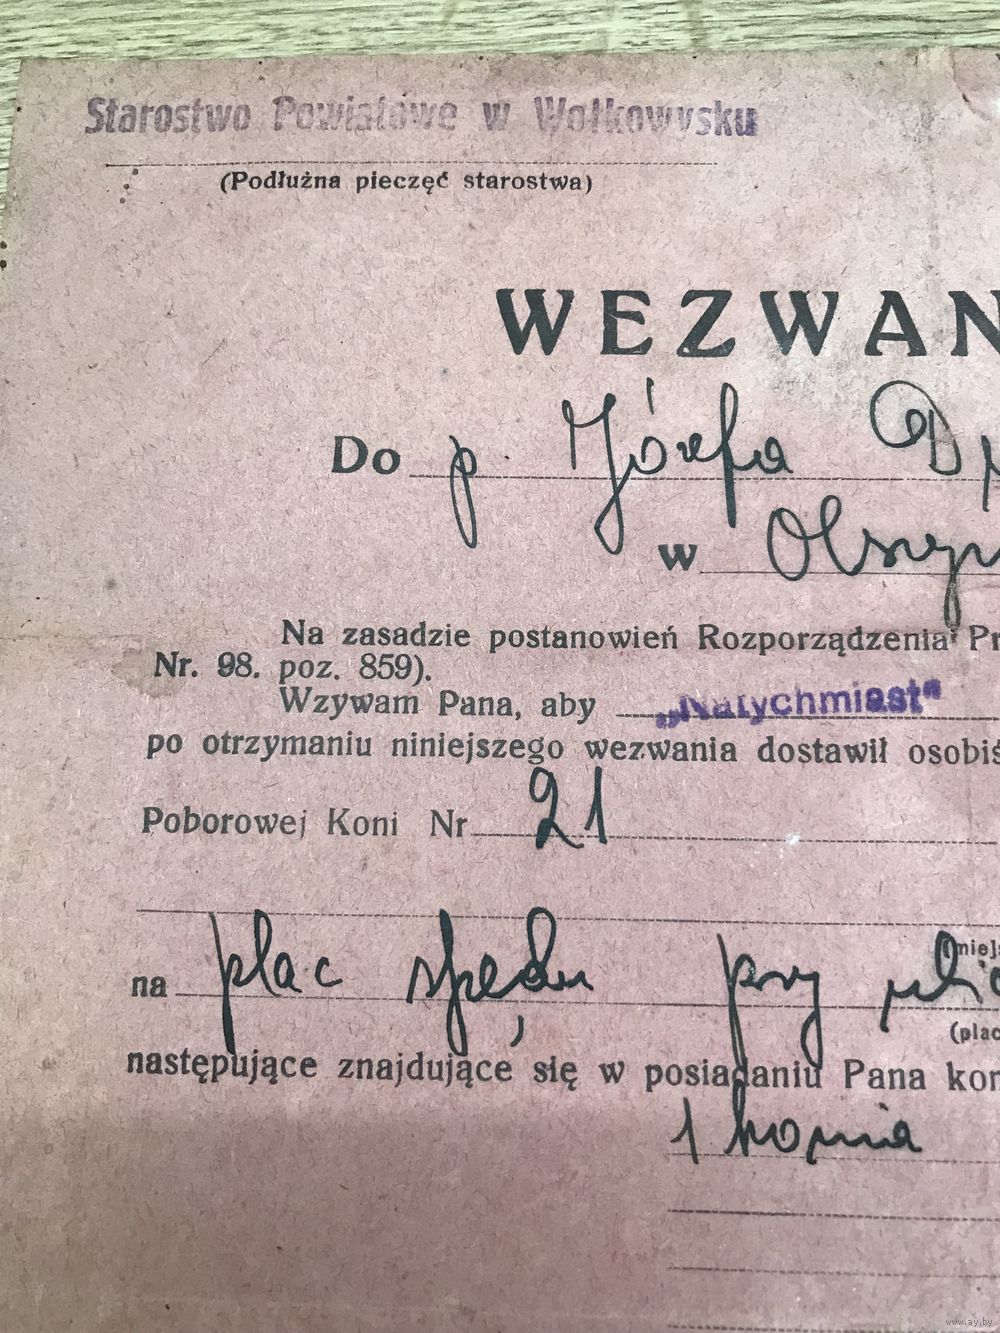 Starostwo Powiatowe w Wołkowysku
(Podłużna pieczęć starostwa)
WEZWAN
Do p. Józefa D
w Olszyn
Na zasadzie postanowień Rozporządzenia Pr
Nr. 98. poz. 859).
Wzywam Pana, aby „Natychmiast"
po otrzymaniu niniejszego wezwania dostawił osobiś
Poborowej Koni Nr 21
(miejs
na plac spędu przy ulic
(plac
następujące znajdujące się w posiadaniu Pana kon
1 konia
www.ay.by